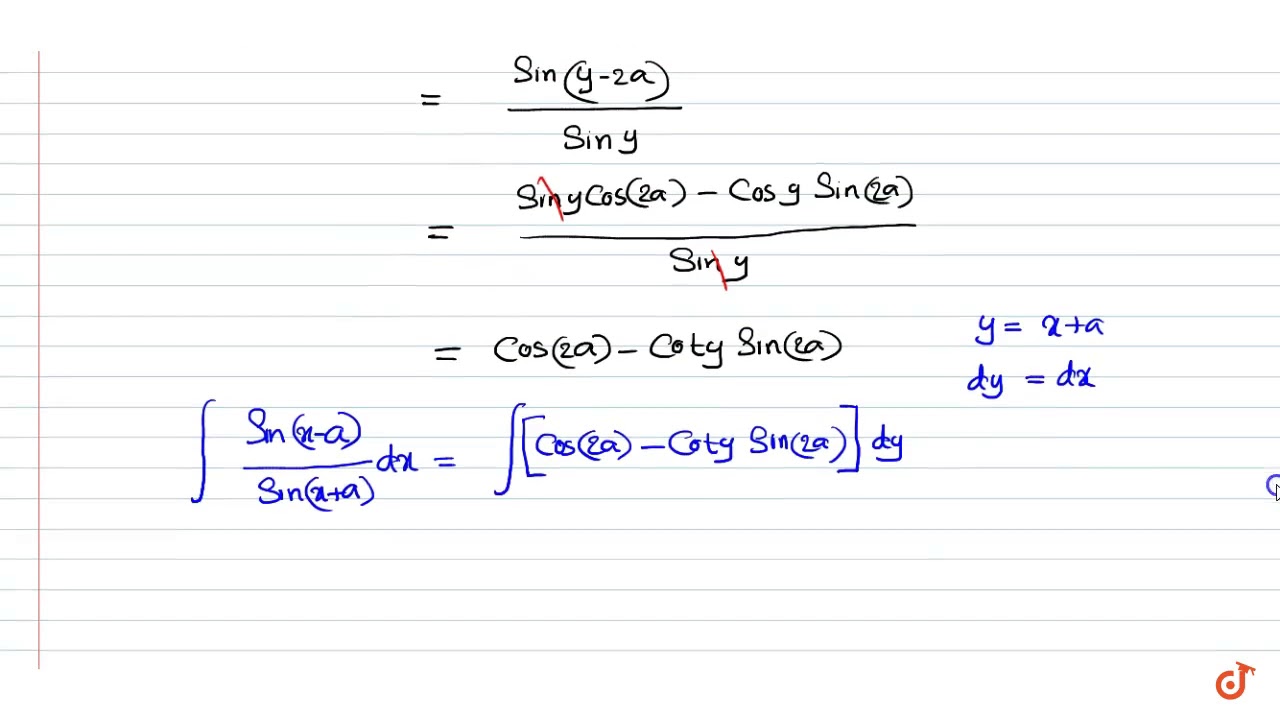 = Sin(y-2a) / Sin y
= Sin y Cos(2a) - Cos y Sin(2a) / Sin y
= Cos(2a) - Coty Sin(2a)
y = x+a
dy = dx
∫ Sin(x-a) / Sin(x+a) dx = ∫ [Cos(2a) - Coty Sin(2a)] dy